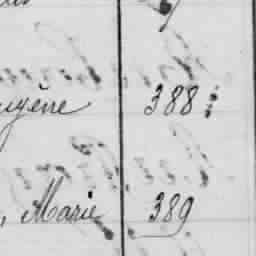 uyêne 388
, Marie 389